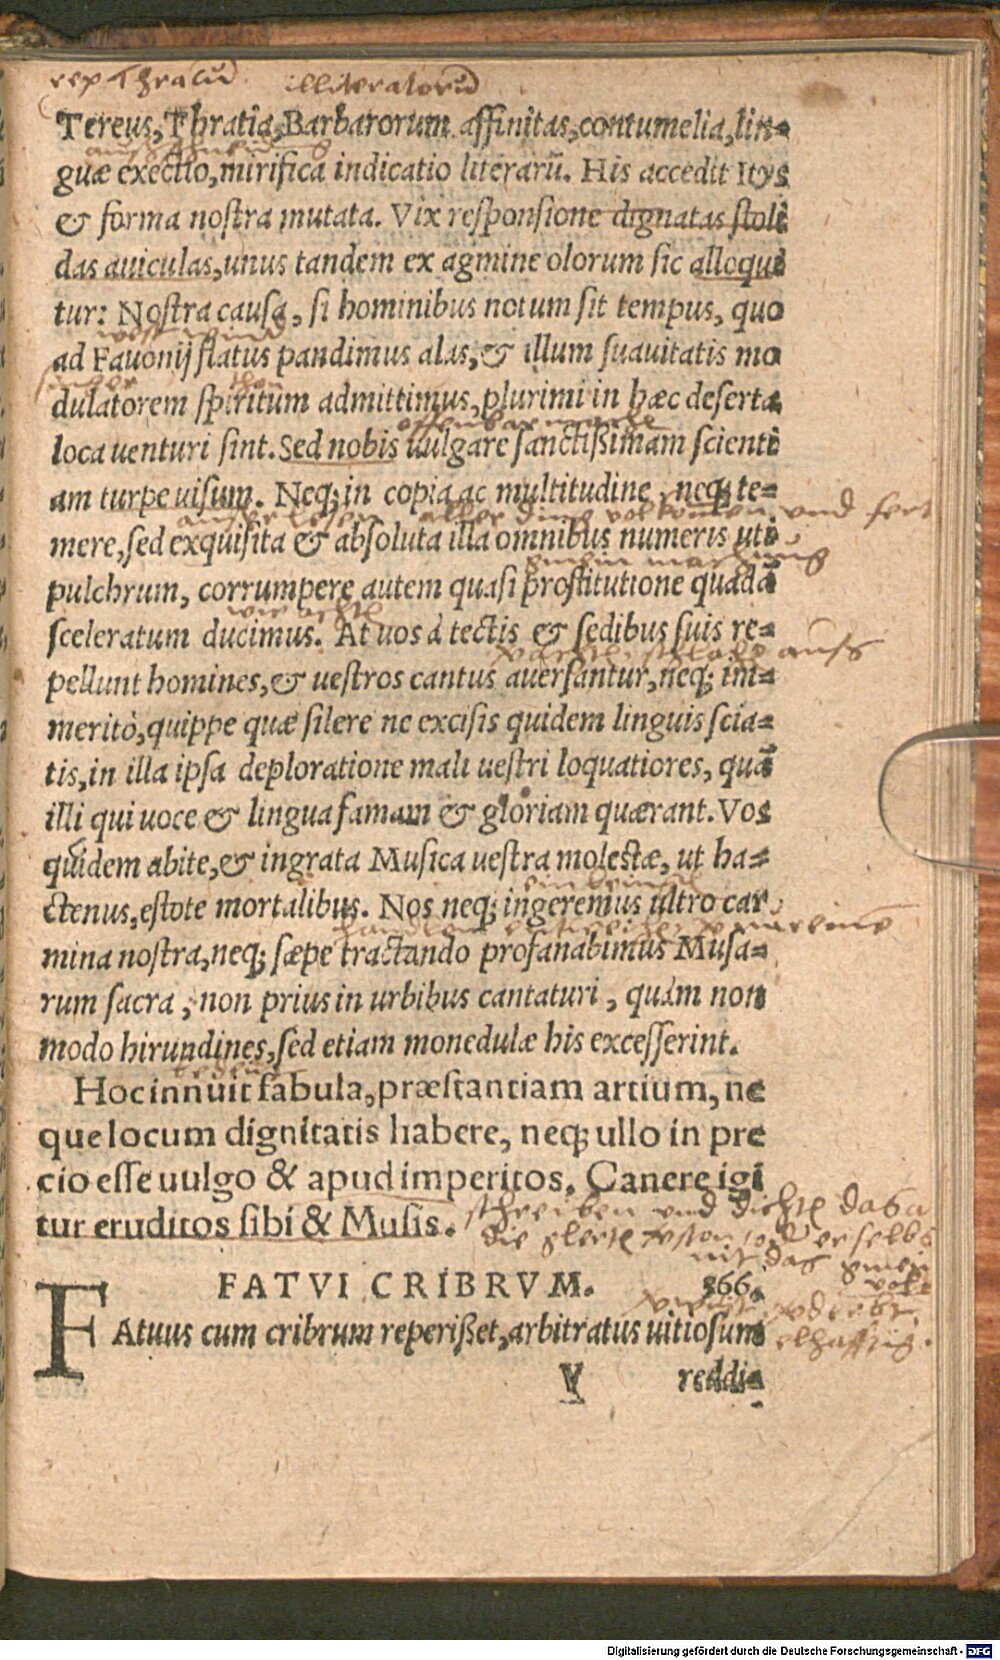 rex Thracū illiteratorū
Tereus, Thratia, Barbarorum affinitas, contumelia, lin-
guæ exectio, mirifica indicatio literarū. His accedit Itys
& forma nostra mutata. Vix responsione dignatas stoli
das auiculas, unus tandem ex agmine olorum sic alloqui
tur: Nostra causa, si hominibus notum sit tempus, quo
west wind
ad Fauonij flatus pandimus alas, & illum suauitatis mo
dulatorem spiritum admittimus, plurimi in hæc deserta
loca uenturi sint. Sed nobis uulgare sanctissimam scienti
am turpe uisum. Neq; in copia ac multitudine, neq; te-
aller ding volkomen und
mere, sed exquisita & absoluta illa omnibus numeris uti
pulchrum, corrumpere autem quasi prostitutione quadā
sceleratum ducimus. At uos à tectis & sedibus suis re-
pellunt homines, & uestros cantus auersantur, neq; im-
meritò, quippe quæ silere ne excisis quidem linguis scia-
tis, in illa ipsa deploratione mali uestri loquatiores, quā
illi qui uoce & lingua famam & gloriam quærant. Vos
quidem abite, & ingrata Musica uestra molestæ, ut ha-
ctenus, estote mortalibus. Nos neq; ingeremus ultro car
mina nostra, neq; sæpe tractando profanabimus Musa-
rum sacra, non prius in urbibus cantaturi, quàm non
modo hirundines, sed etiam monedulæ his excesserint.
bedeut
Hoc innuit fabula, præstantiam artium, ne
que locum dignitatis habere, neq; ullo in pre
cio esse uulgo & apud imperitos. Canere igi
tur eruditos sibi & Musis.
schreiben und dichtē das
die glertē
nit das gmein
volk
FATVI CRIBRVM. 366.
FAtuus cum cribrum reperisset, arbitratus uitiosum
V reddi-
Digitalisierung gefördert durch die Deutsche Forschungsgemeinschaft - DFG